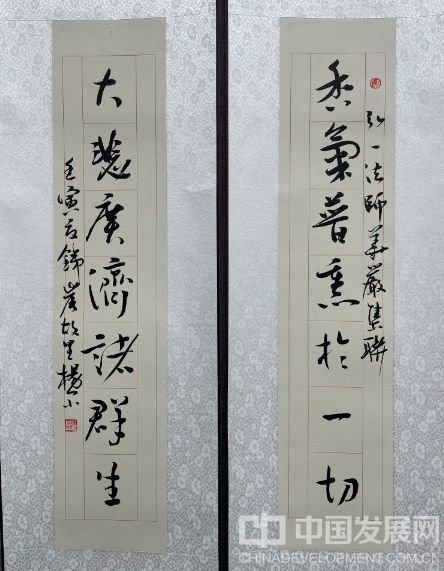 弘一法師華嚴集聯
香氣普熏於一切
大慈廣濟諸群生
壬寅 故里楊
中国发展网
CHINADEVELOPMENT.COM.CN